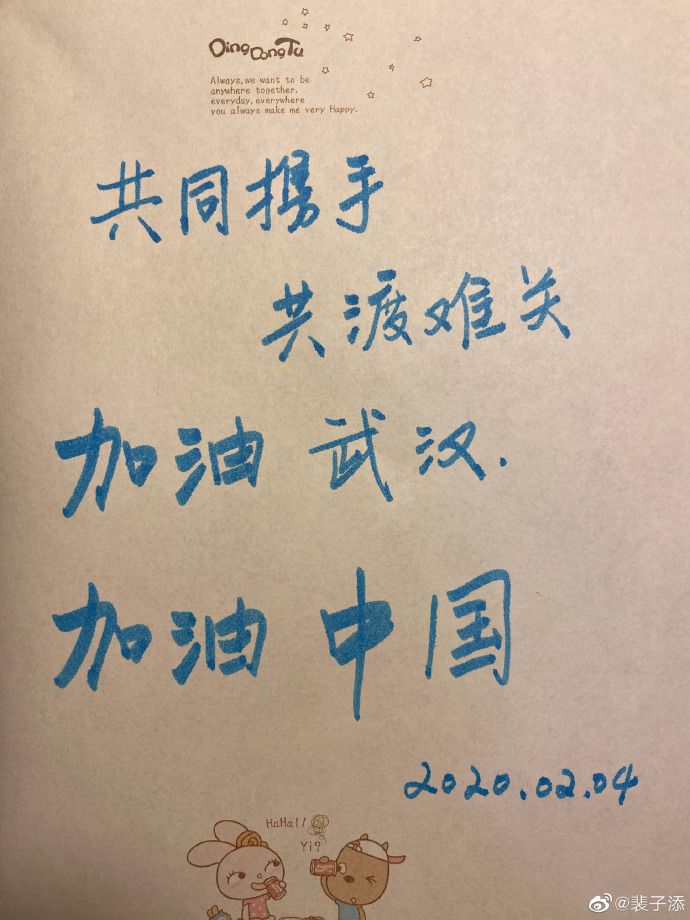 DingDongTu
Always, we want to be
anywhere together.
everyday, everywhere
you always make me very Happy.
共同携手
共渡难关
加油 武汉.
加油 中国
2020.02.04
HaHa!!
Yi?
@裴子添